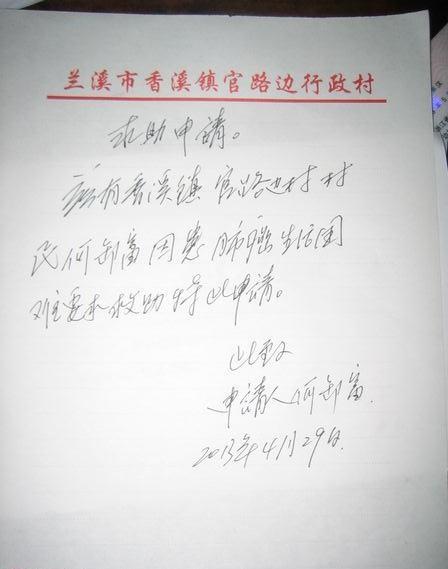 兰溪市香溪镇官路边行政村
求助申请。
兹有香溪镇官路边村村
民何卸富因患肺癌生活困
难要求救助特此申请。
此致
申请人何卸富.
2013年4月29日.